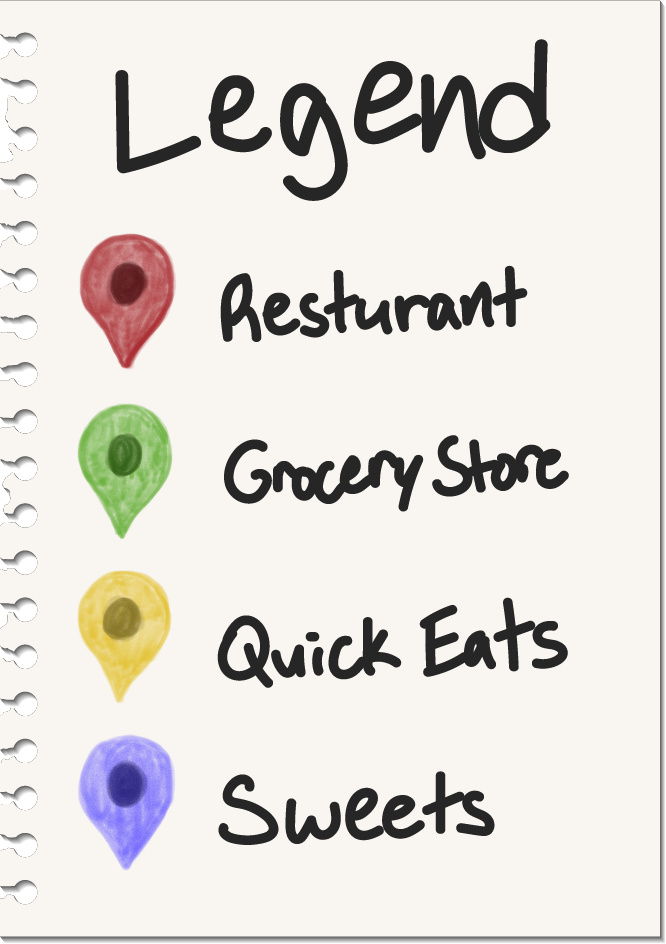 Legend
Resturant
Grocery Store
Quick Eats
Sweets